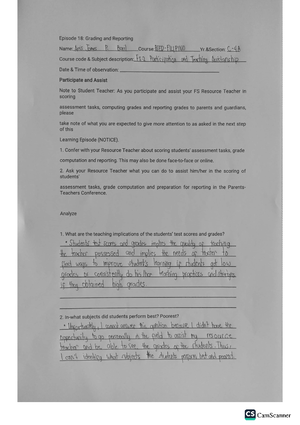 Episode 18: Grading and Reporting
Name: James D. Course BSED-FILIPINO Yr &Section:
Course code & Subject description: FS2 Participation and Teaching
Date & Time of observation:
Participate and Assist
Note to Student Teacher: As you participate and assist your FS Resource Teacher in
scoring
assessment tasks, computing grades and reporting grades to parents and guardians,
please
take note of what you are expected to give more attention to as asked in the next step
of this
Learning Episode (NOTICE).
1. Confer with your Resource Teacher about scoring students' assessment tasks, grade
computation and reporting. This may also be done face-to-face or online.
2. Ask your Resource Teacher what you can do to assist him/her in the scoring of
students'
assessment tasks, grade computation and preparation for reporting in the Parents-
Teachers Conference.
Analyze
1. What are the teaching implications of the students' test scores and grades?
• Students' test scores and grades implies the quality of teaching
the teacher possessed and implies the needs of teacher to
find ways to improve student's learning if students got low
grades or consistently do his/her teaching practices and strategies
if they obtained high grades.
2. In what subjects did students perform best? Poorest?
• Unfortunately, I cannot answer this question because I didn't have the
opportunity to go personally in the field to assist my resource
teacher and be able to see the grades of the students. Thus,
I can't identify what subjects the students perform best and poorest.
CS CamScanner